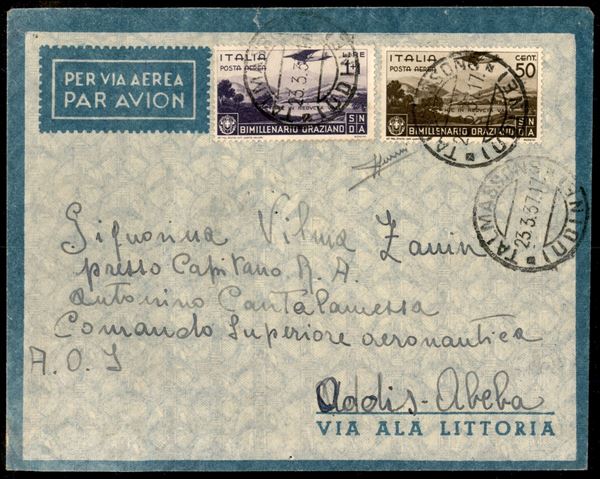 PER VIA AEREA
PAR AVION
ITALIA LIRE
POSTA AEREA 1
BIMILLENARIO ORAZIANO
ITALIA CENT.
POSTA AEREA 50
BIMILLENARIO ORAZIANO
TALMASSONS (UDINE)
23.3.37.17
Signorina Vilma Zanin
presso Capitano A. A.
Antonino Cantalamessa
Comando Superiore aeronautica
A.O.I
Addis-Abeba
VIA ALA LITTORIA